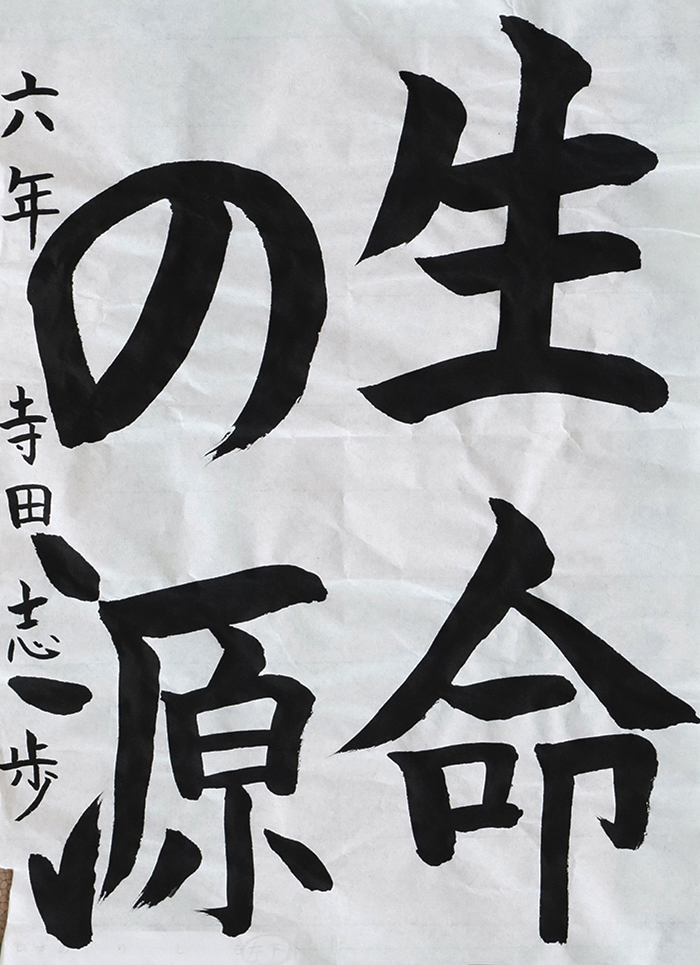 生命
の源
六年 寺田志歩